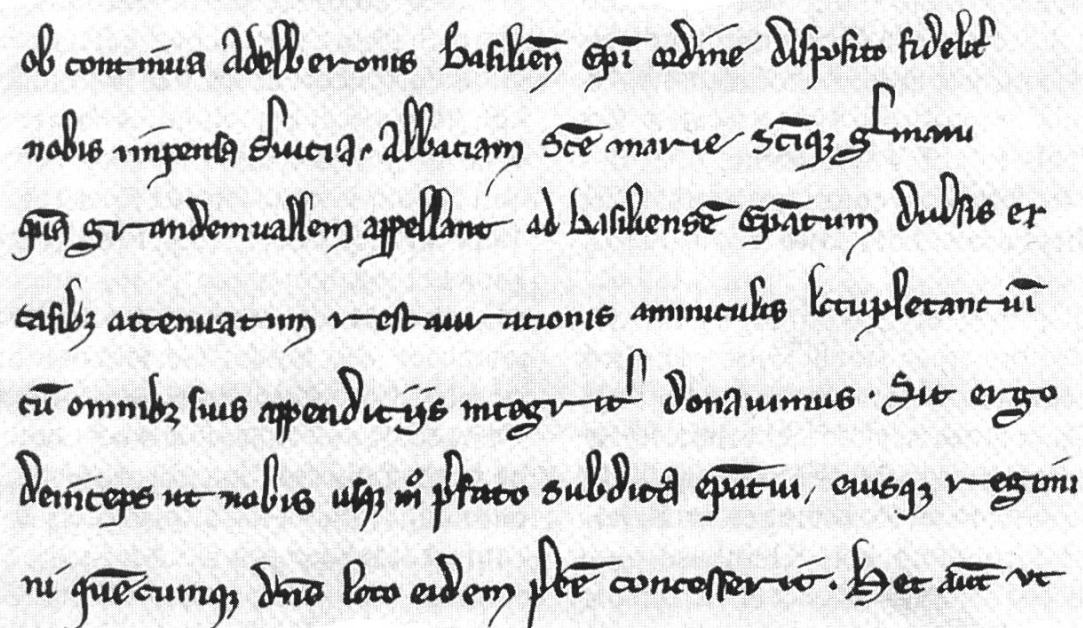 ob continua Adelberonis basilien̄ ep̄i ordine disposito fidelit͛
nobis impensa s̓uicia. Abbatiam Sc̄e marie Sc̄iq; g͛mani
quā grandemuallem appellant ad basiliensē ep̄atum diu᷒sis ex
casib; attenuatum restaurationis amminiculis locupletant
cū omnib; suis appendicijs integrit͛ donauimus. Sit ergo
deinceps ut nobis usq; m̊ p͛fato subdita ep̄atui, eiusq; regimi
ni quēcumq; dn̄s loco eidem p͛eē concesserit. Hec aūt ut